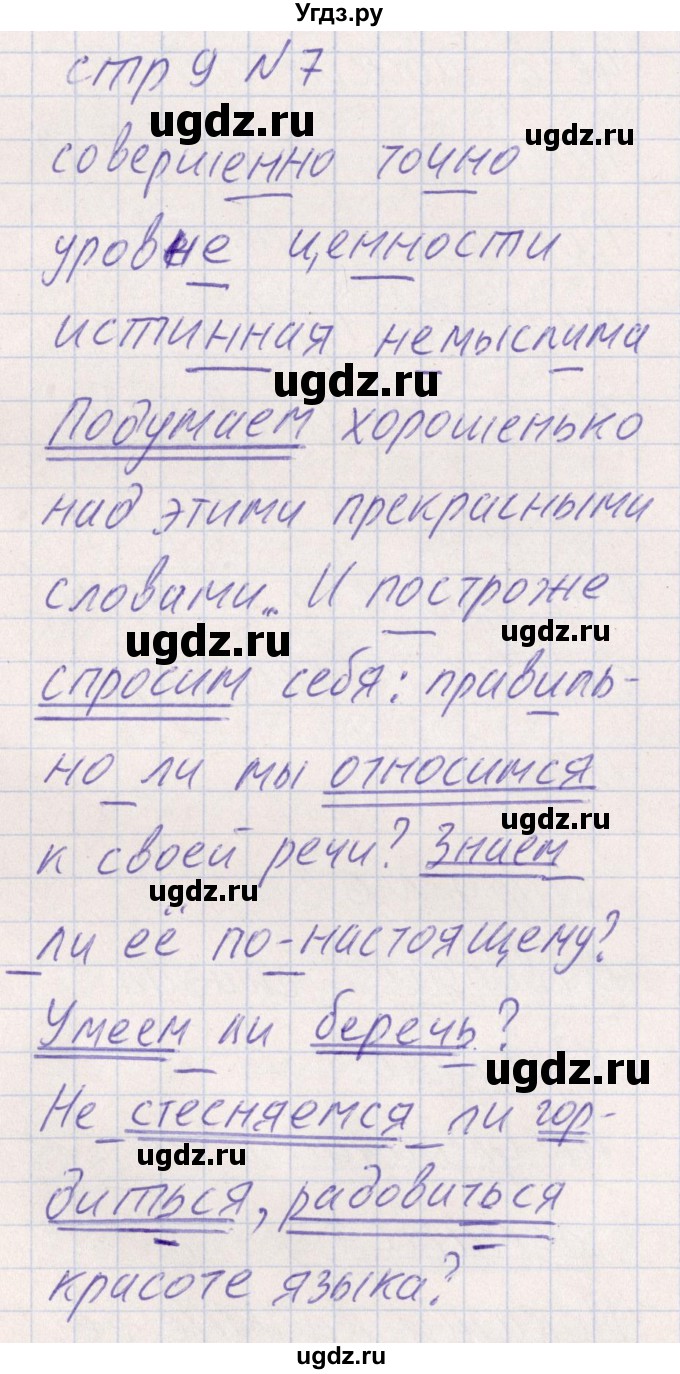 Угдз.ру
стр 9 N 7
ugdz.ru ugdz.ru
совершенно точно
уровне ценности
истинная немыслима
ugdz.ru
Подумаем хорошенько
над этими прекрасными
словами... И построже
ugdz.ru ugdz.ru
спросим себя: правиль-
но ли мы относимся
ugdz.ru
к своей речи? Знаем
ugdz.ru
ли её по-настоящему?
Умеем ли беречь?
ugdz.ru
Не стесняемся ли гор-
ugdz.ru
диться, радовиться
красоте языка?
ugdz.ru